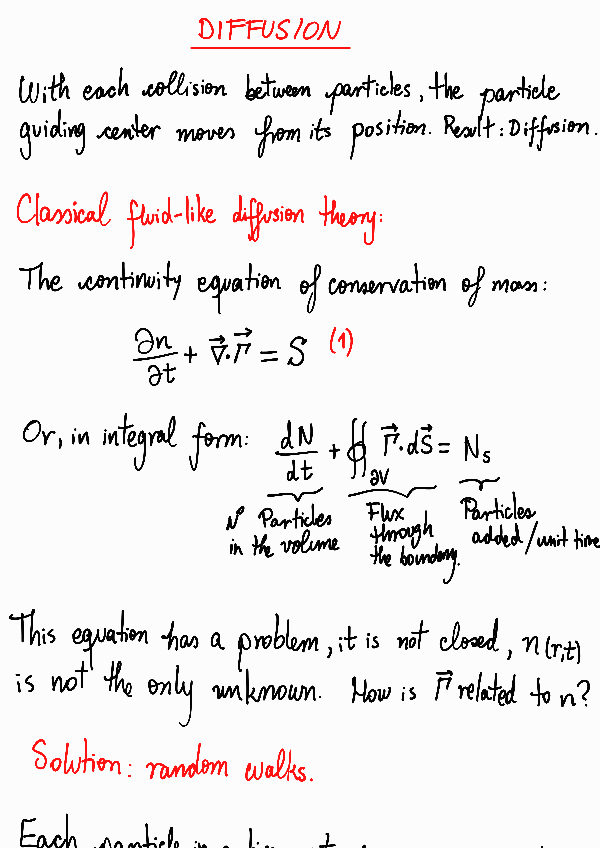 DIFFUSION
With each collision between particles, the particle
guiding center moves from its position. Result: Diffusion.
Classical fluid-like diffusion theory:
The continuity equation of conservation of mass:
∂n/∂t + ∇⃗·Γ⃗ = S (1)
Or, in integral form: dN/dt + ∯_∂V Γ⃗·dS⃗ = Ns
Nº Particles in the volume
Flux through the boundary.
Particles added/unit time
This equation has a problem, it is not closed, n(r,t)
is not the only unknown. How is Γ⃗ related to n?
Solution: random walks.
Each particle in